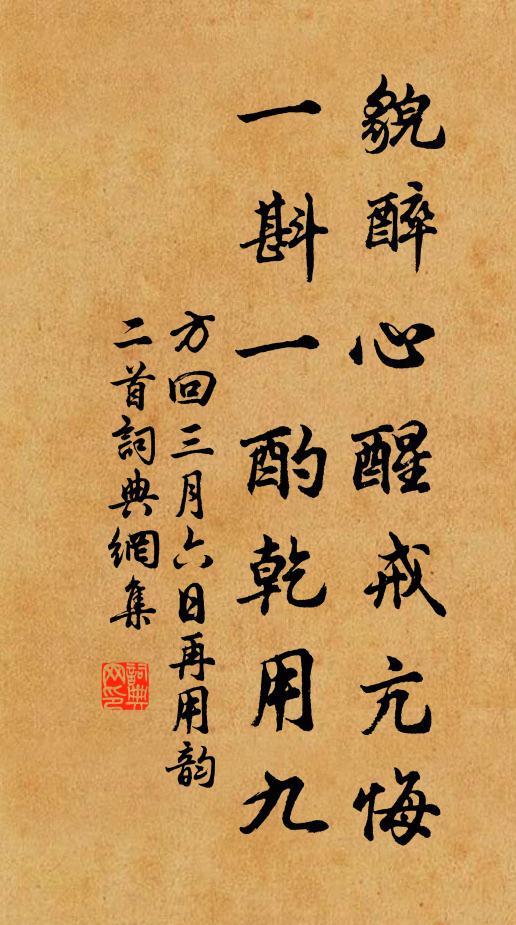 貌醉心醒戒亢悔
一斟一酌乾用九
方回三月六日再用韵
二首詞典網集
詞典
网印